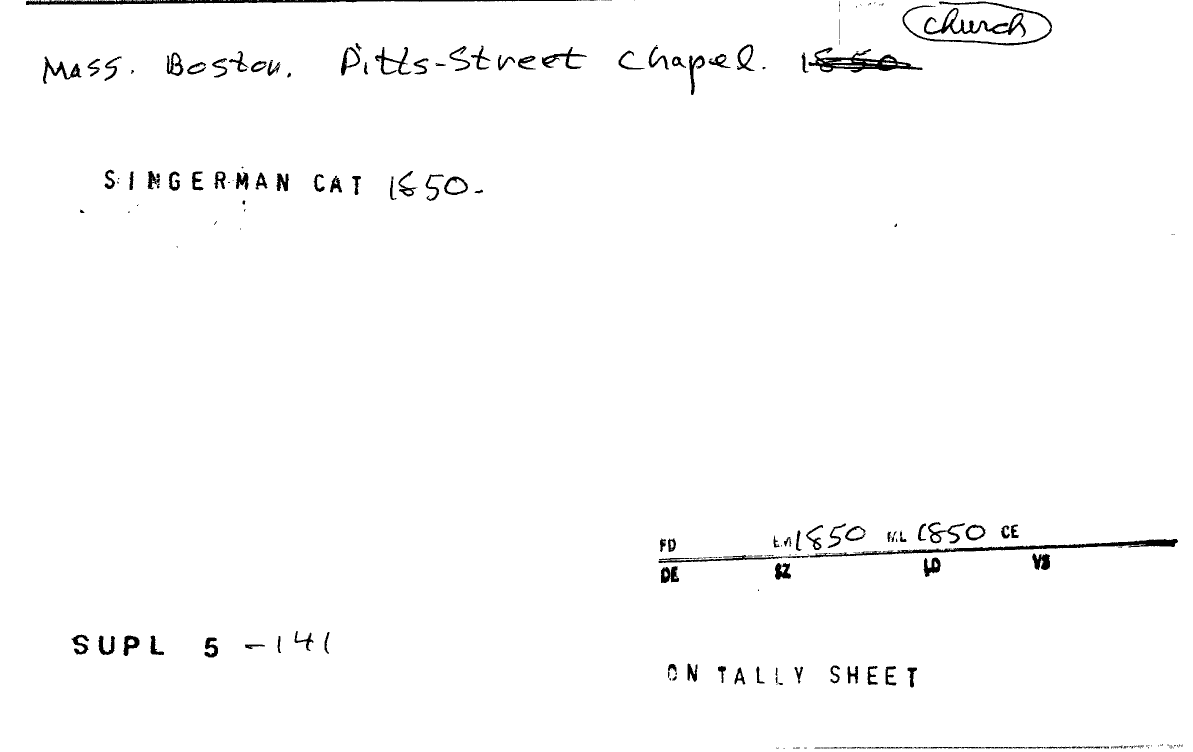 church
Mass. Boston. Pitts-Street Chapel. 1850
SINGERMAN CAT 1850-
FD 1850 ML 1850 CE
DE SZ LD VS
SUPL 5 -141
ON TALLY SHEET